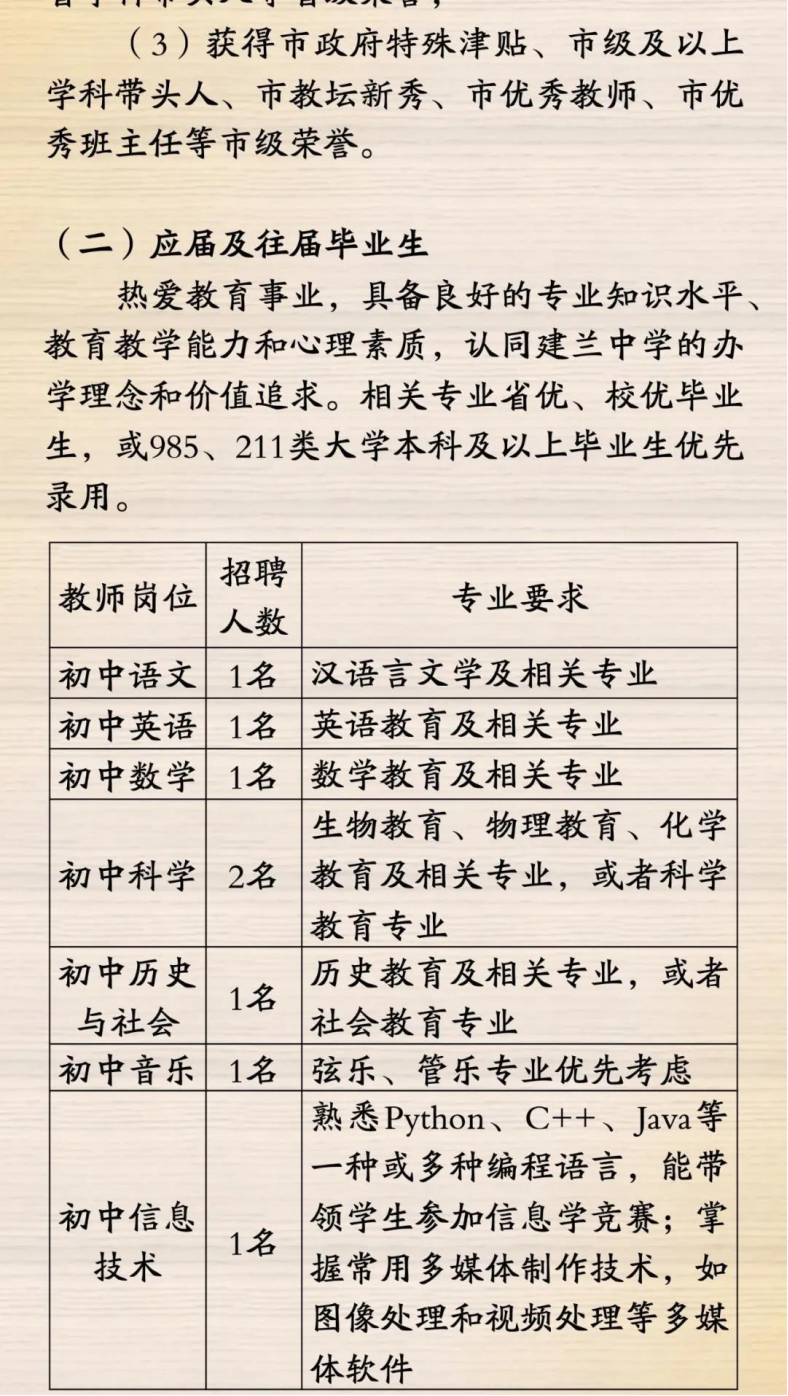 （3）获得市政府特殊津贴、市级及以上
学科带头人、市教坛新秀、市优秀教师、市优
秀班主任等市级荣誉。
（二）应届及往届毕业生
热爱教育事业，具备良好的专业知识水平、
教育教学能力和心理素质，认同建兰中学的办
学理念和价值追求。相关专业省优、校优毕业
生，或985、211类大学本科及以上毕业生优先
录用。
教师岗位 招聘人数 专业要求
初中语文 1名 汉语言文学及相关专业
初中英语 1名 英语教育及相关专业
初中数学 1名 数学教育及相关专业
初中科学 2名 生物教育、物理教育、化学
教育及相关专业，或者科学
教育专业
初中历史
与社会 1名 历史教育及相关专业，或者
社会教育专业
初中音乐 1名 弦乐、管乐专业优先考虑
初中信息
技术 1名 熟悉Python、C++、Java等
一种或多种编程语言，能带
领学生参加信息学竞赛；掌
握常用多媒体制作技术，如
图像处理和视频处理等多媒
体软件